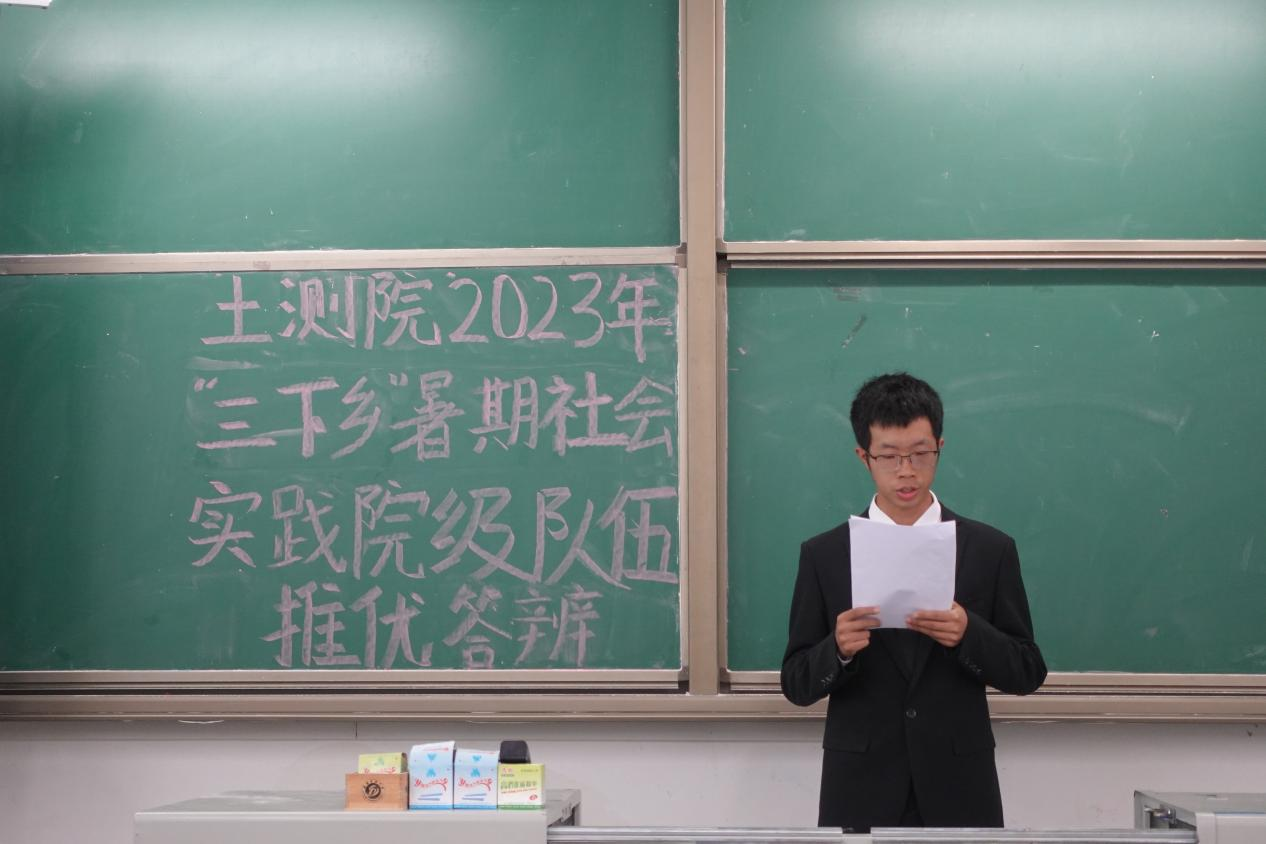 土测院2023年
“三下乡”暑期社会
实践院级队伍
推优答辨